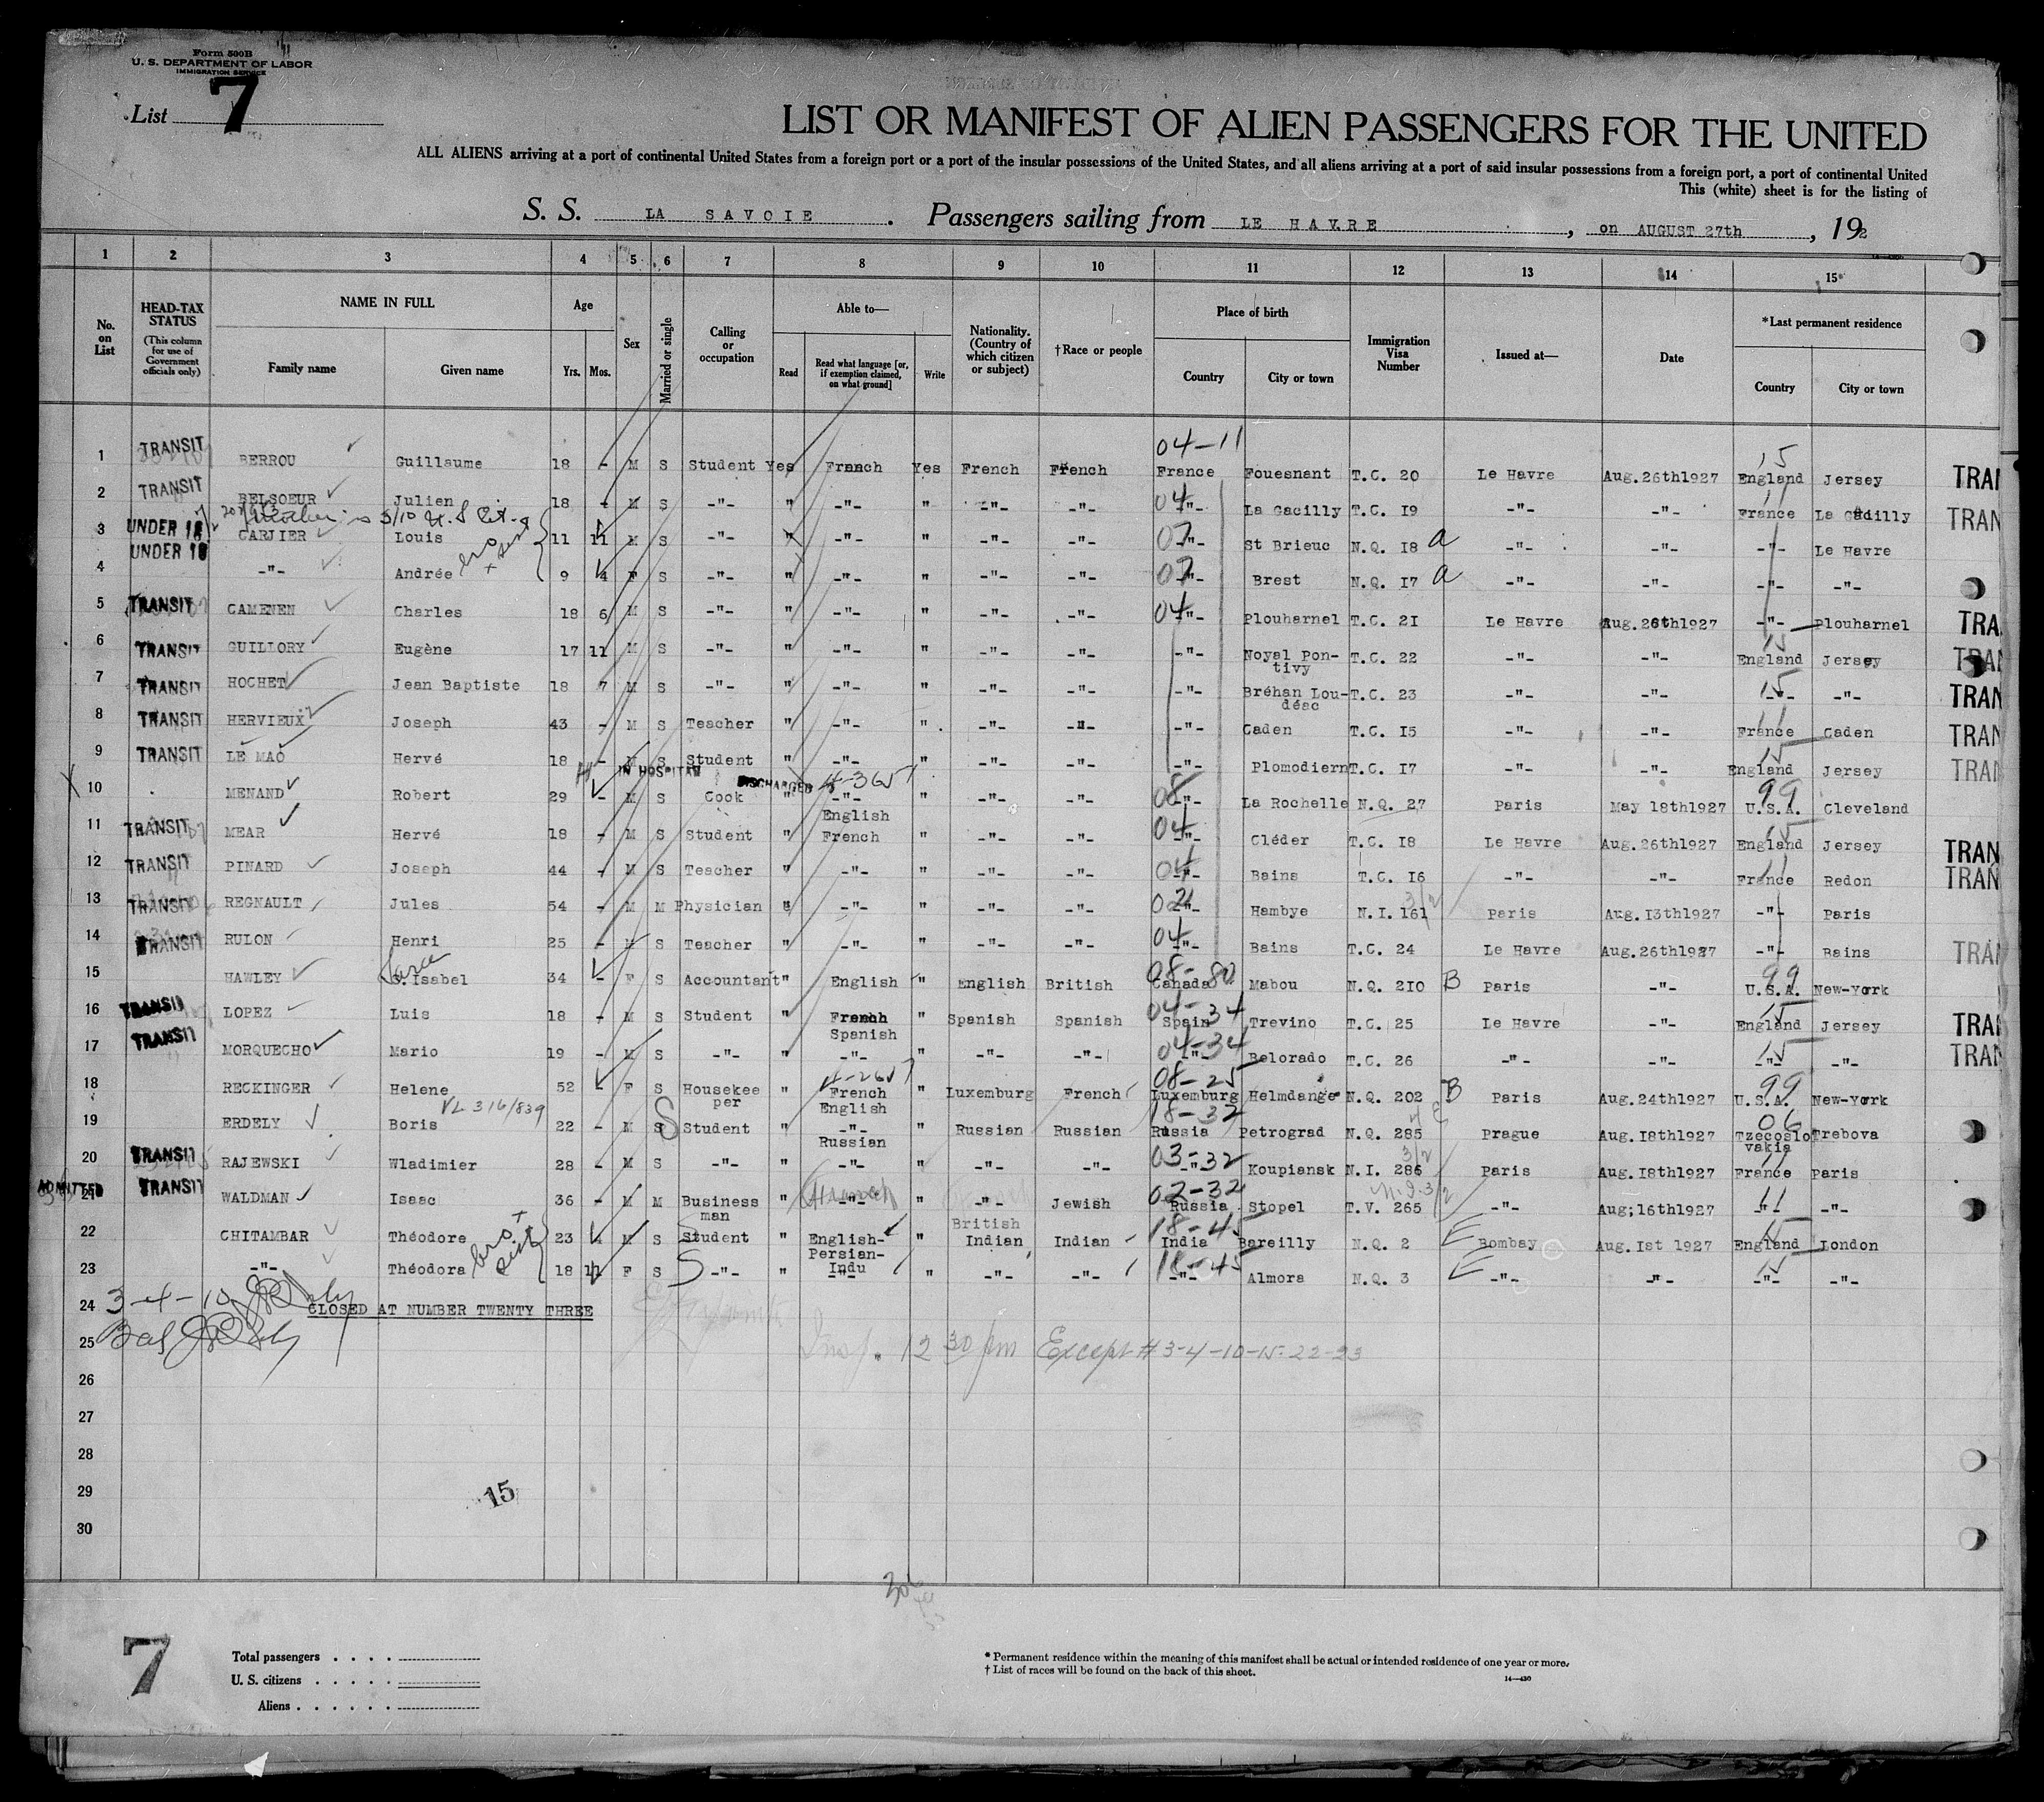 Form 500B
U. S. DEPARTMENT OF LABOR
IMMIGRATION SERVICE
List 7
LIST OR MANIFEST OF ALIEN PASSENGERS FOR THE UNITED
ALL ALIENS arriving at a port of continental United States from a foreign port or a port of the insular possessions of the United States, and all aliens arriving at a port of said insular possessions from a foreign port, a port of continental United
This (white) sheet is for the listing of
S. S. LA SAVOIE . Passengers sailing from LE HAVRE , on AUGUST 27th , 192
1 2 3 4 5 6 7 8 9 10 11 12 13 14 15
No. on List
HEAD-TAX STATUS (This column for use of Government officials only)
NAME IN FULL
Family name Given name
Age Yrs. Mos.
Sex
Married or single
Calling or occupation
Able to—
Read Read what language [or, if exemption claimed, on what ground] Write
Nationality. (Country of which citizen or subject)
†Race or people
Place of birth
Country City or town
Immigration Visa Number
Issued at—
Date
*Last permanent residence
Country City or town
04-11 15
1 TRANSIT BERROU Guillaume 18 - M S Student Yes French Yes French French France Fouesnant T.C. 20 Le Havre Aug.26th1927 England Jersey TRAN
2 TRANSIT BELSOEUR Julien 18 - M S -"- " -"- " -"- -"- 04 -"- La Gacilly T.C. 19 -"- -"- 11 France La Gadilly TRAN
3 UNDER 16 CARJIER Louis 11 11 M S -"- " -"- " -"- -"- 07 -"- St Brieuc N.Q. 18 a -"- -"- -"- Le Havre
bro + sist
4 UNDER 16 -"- Andrée 9 4 F S -"- " -"- " -"- -"- 07 -"- Brest N.Q. 17 a -"- -"- -"- -"-
5 TRANSIT CAMENEN Charles 18 6 M S -"- " -"- " -"- -"- 04 -"- Plouharnel T.C. 21 Le Havre Aug.26th1927 -"- Plouharnel TRA
6 TRANSIT GUILLORY Eugène 17 11 M S -"- " -"- " -"- -"- -"- Noyal Pontivy T.C. 22 -"- -"- 15 England Jersey TRAN
7 TRANSIT HOCHET Jean Baptiste 18 7 M S -"- " -"- " -"- -"- -"- Bréhan Loudéac T.C. 23 -"- -"- 15 -"- -"- TRAN
8 TRANSIT HERVIEUX Joseph 43 - M S Teacher " -"- " -"- -"- -"- Caden T.C. 15 -"- -"- 11 France Caden TRAN
9 TRANSIT LE MAO Hervé 18 - M S Student " -"- " -"- -"- -"- Plomodiern T.C. 17 -"- -"- 15 England Jersey TRAN
IN HOSPITAL DISCHARGED 4-3651
10 MENAND Robert 29 - M S Cook " -"- English " -"- -"- 08 -"- La Rochelle N.Q. 27 Paris May 18th1927 99 U.S.A. Cleveland
11 TRANSIT MEAR Hervé 18 - M S Student " French " -"- -"- 04 -"- Cléder T.C. 18 Le Havre Aug.26th1927 15 England Jersey TRAN
12 TRANSIT PINARD Joseph 44 - M S Teacher " -"- " -"- -"- 04 -"- Bains T.C. 16 -"- -"- 11 France Redon TRAN
13 TRANSIT REGNAULT Jules 54 - M M Physician " -"- " -"- -"- -"- Hambye N.I. 161 3/2 Paris Aug.13th1927 -"- Paris
14 TRANSIT RULON Henri 25 - M S Teacher " -"- " -"- -"- 04 -"- Bains T.C. 24 Le Havre Aug.26th1927 -"- Bains TRAN
15 HAWLEY S. Isabel 34 - F S Accountant " English " English British 08-80 Canada Mabou N.Q. 210 B Paris -"- 99 U.S.A. New-York
16 TRANSIT LOPEZ Luis 18 - M S Student " French Spanish " Spanish Spanish 04-34 Spain Trevino T.C. 25 Le Havre -"- 15 England Jersey TRAN
17 TRANSIT MORQUECHO Mario 19 - M S -"- " -"- " -"- -"- 04-34 -"- Belorado T.C. 26 -"- -"- 15 -"- -"- TRAN
18 RECKINGER Helene 52 - F S Housekeeper " French English " Luxemburg French 08-25 Luxemburg Helmdange N.Q. 202 B Paris Aug.24th1927 99 U.S.A. New-York
VL 316/839
19 ERDELY Boris 22 - M S Student " -"- Russian " Russian Russian 18-32 Russia Petrograd N.Q. 285 Prague Aug.18th1927 06 Tzecoslovakia Trebova
20 TRANSIT RAJEWSKI Wladimier 28 - M S -"- " -"- " -"- -"- 03-32 -"- Koupiansk N.I. 286 3/2 Paris Aug.18th1927 11 France Paris
21 ADMITTED TRANSIT WALDMAN Isaac 36 - M M Business man " -"- " -"- Jewish 02-32 Russia Stopel T.V. 265 -"- Aug;16th1927 11 -"- -"-
22 CHITAMBAR Théodore 23 M S Student " English-Persian-Indu " British Indian Indian 18-45 India Bareilly N.Q. 2 E Bombay Aug.1st 1927 15 England London
bro + sist
23 -"- Théodora 18 11 F S -"- " -"- " -"- -"- 18-45 -"- Almora N.Q. 3 E -"- -"- 15 -"- -"-
24 3-4-10 CLOSED AT NUMBER TWENTY THREE
25 Bal 12 30 pm Except # 3-4-10-15-22-23
26
27
28
29
30
15
7
Total passengers
U. S. citizens
Aliens
* Permanent residence within the meaning of this manifest shall be actual or intended residence of one year or more.
† List of races will be found on the back of this sheet.
14—430